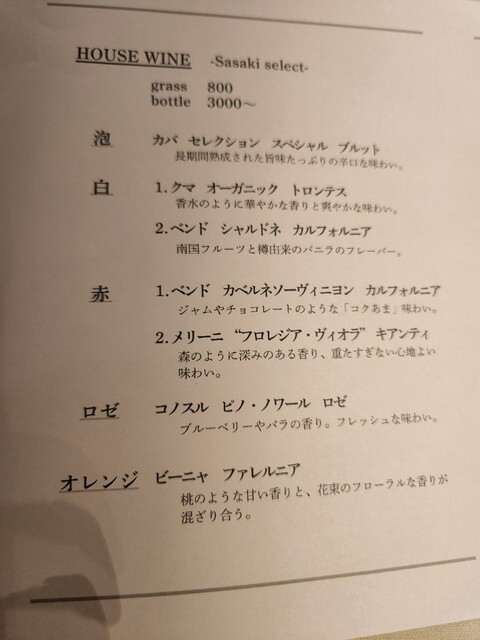 HOUSE WINE -Sasaki select-
grass 800
bottle 3000～
泡 カバ セレクション スペシャル ブルット
長期間熟成された旨味たっぷりの辛口な味わい。
白 1.クマ オーガニック トロンテス
香水のように華やかな香りと爽やかな味わい。
2.ベンド シャルドネ カルフォルニア
南国フルーツと樽由来のバニラのフレーバー。
赤 1.ベンド カベルネソーヴィニヨン カルフォルニア
ジャムやチョコレートのような「コクあま」味わい。
2.メリーニ “フロレジア・ヴィオラ” キアンティ
森のように深みのある香り、重たすぎない心地よい
味わい。
ロゼ コノスル ピノ・ノワール ロゼ
ブルーベリーやバラの香り。フレッシュな味わい。
オレンジ ビーニャ ファレルニア
桃のような甘い香りと、花束のフローラルな香りが
混ざり合う。